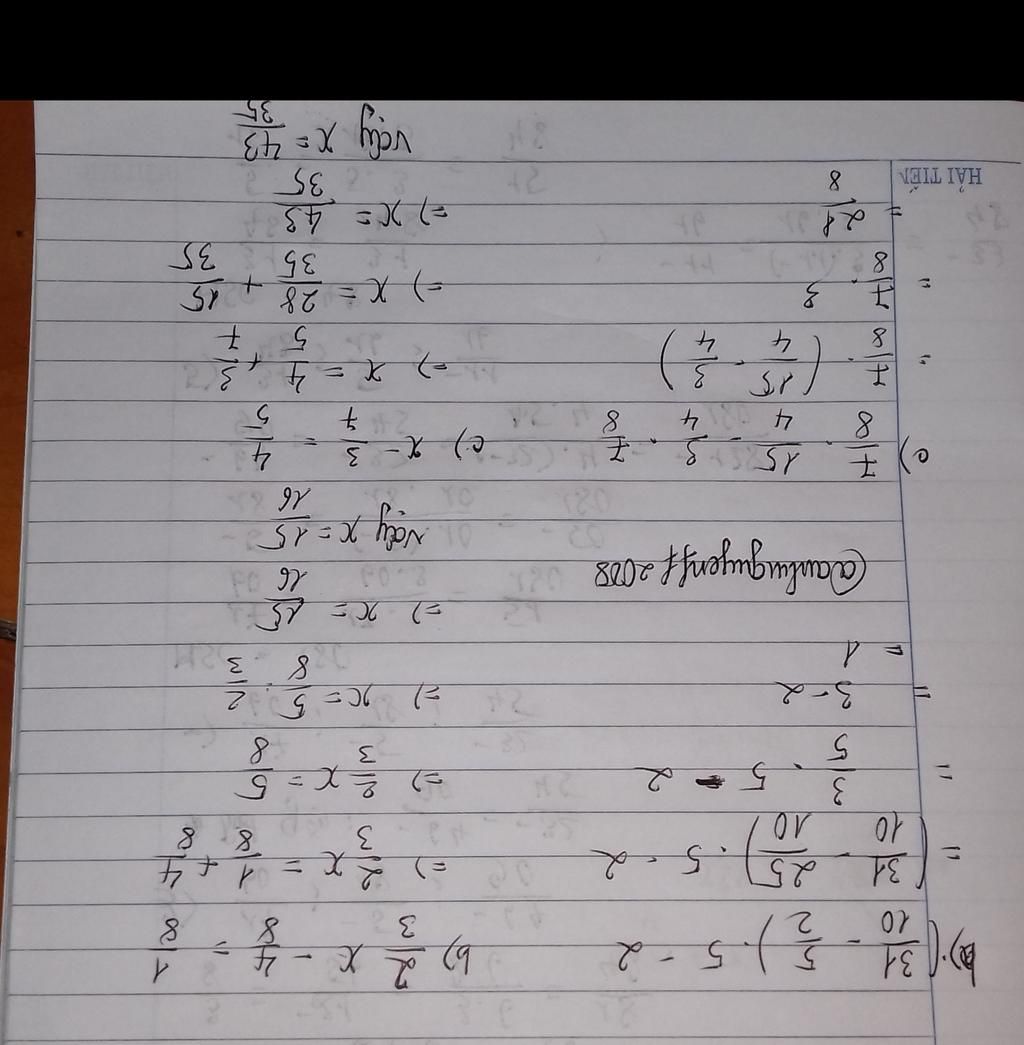 b) (31/10 - 5/2) . 5 - 2
= (31/10 - 25/10) . 5 - 2
= 3/5 . 5 - 2
= 3 - 2
= 1
@anhnguyenff2008
c) 7/8 . 15/4 - 3/4 . 7/8
= 7/8 . (15/4 - 3/4)
= 7/8 . 3
= 21/8
HẢI TIẾN
b) 2/3 x - 4/8 = 1/8
=) 2/3 x = 1/8 + 4/8
=) 2/3 x = 5/8
=) x = 5/8 : 2/3
=) x = 15/16
Vậy x = 15/16
c) x - 3/7 = 4/5
=) x = 4/5 + 3/7
=) x = 28/35 + 15/35
=) x = 43/35
Vậy x = 43/35